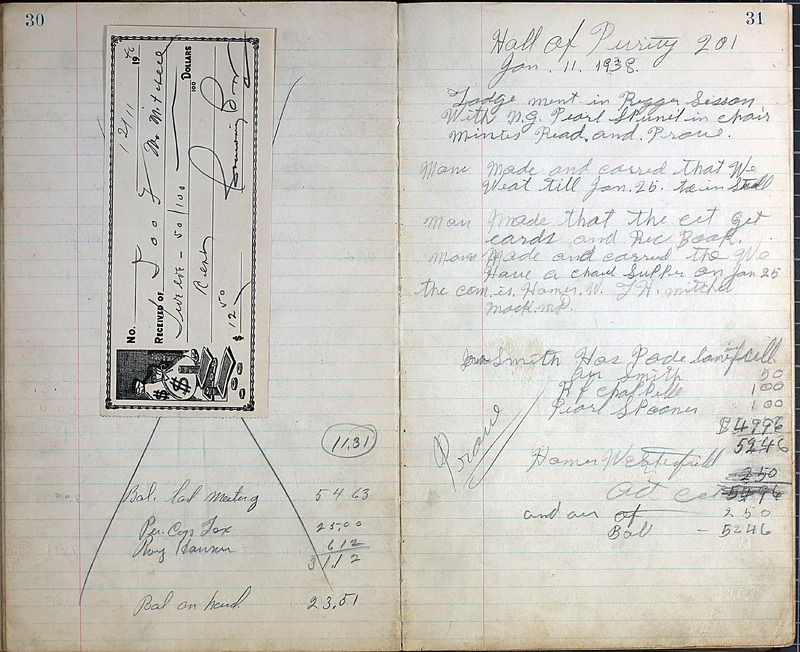 30
No. 12/11 19
RECEIVED OF I O O F
Twelve - 50/100 DOLLARS
100
Rent
$ 12 50
11.31
Bal. last meeting 54 63
Per. Cap Tax 25,00
Roy 6 12
3 1, 1 2
Bal on hand. 23.51
31
Hall of Purity 201
Jan. 11. 1938.
Lodge ment in Regger Sisson
With N.G. Pearl in chair
mintes Read, and. Prove.
Move Made and carred that We
Weat till Jan. 25. to in Stall
Mov Made that the cet get
cards and Rec Book.
Move Made and carred the We
Have a chard Supper on Jan 25
the com. is. Homer. W. J.H. mitchel
Mack. md.
Smith Has Pade
an Smith 50
1 00
Pearl Spooner 1 00
$ 4996
5246
Prove
Homer Westerfield
250
5496
and an of 250
Ball - 5246